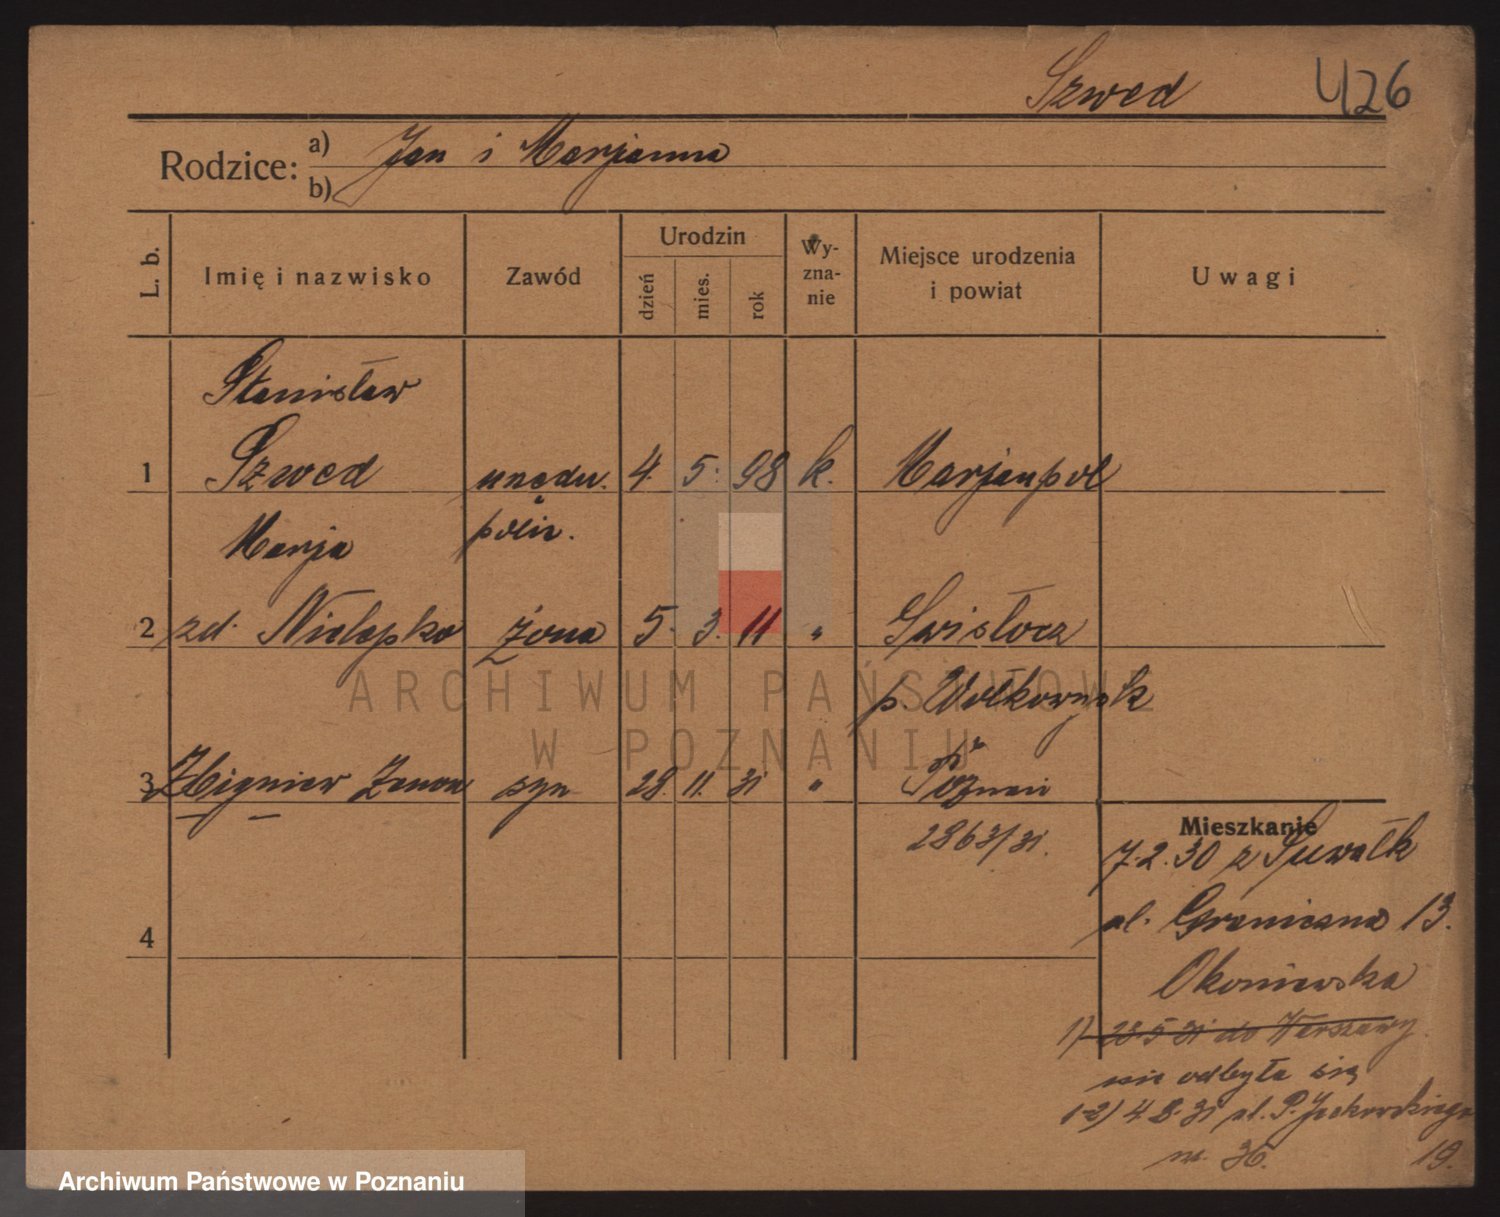 Szwed 426
Rodzice: a) Jan i Marjanna
b)
L. b. Imię i nazwisko Zawód Urodzin dzień mies. rok Wy-zna-nie Miejsce urodzenia i powiat Uwagi
Stanisław
1 Szwed urzędn. 4. 5. 98 k. Marjanpol
Marja polic.
2 zd. Żona 5. 3. 11 " Swisłocz
p. Wołkowysk
3 Zbigniew Zenon syn 28. 11. 31 " Poznań
2863/31.
Mieszkanie
7.2.30 z Suwałk
4 ul. Graniczna 13.
Okoniewska
1) 28 5 31 do Warszawy
nie odbyła się
1-2) 4.8.31 ul. P. Jackowskiego
nr. 36. 19.
ARCHIWUM PAŃSTWOWE
W POZNANIU
Archiwum Państwowe w Poznaniu